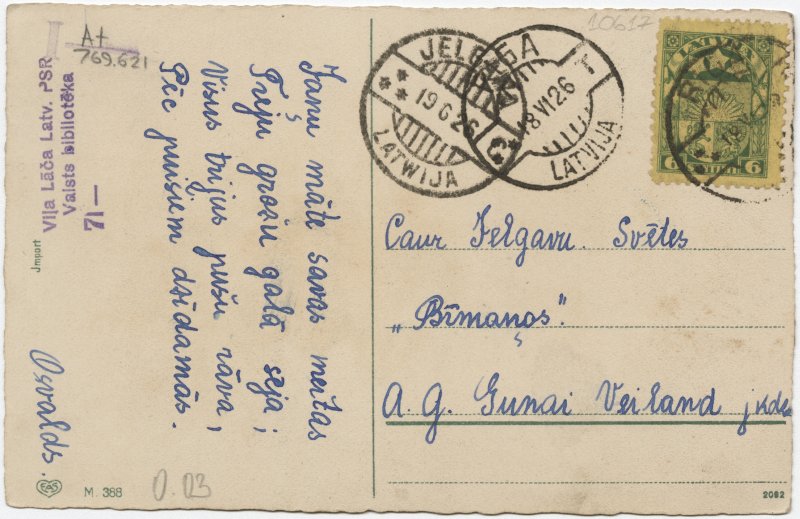 A+
769.621
Viļa Lāča Latv. PSR
Valsts bibliotēka
71—
Jmport
Jaņu māte savas meitas
Treju grožu galā sēja;
Visus trijus pušu rāva,
Pēc puišiem dzīdamās.
Osvalds.
EAS
M. 388
0.03
JELGAVA
19 6 26
LATWIJA
RIGA
18 VI 26
LATVIJA
10617
LATVIJA
6 6
Caur Jelgavu Svētes
„Bīmaņos"
A. g. Gunai Veiland jkdzei
2082